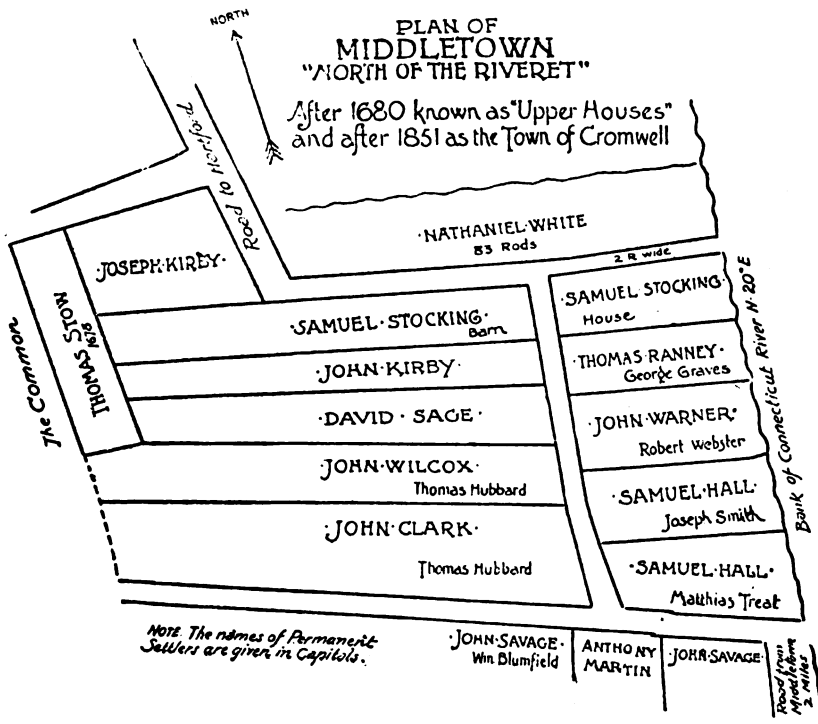 PLAN OF
MIDDLETOWN
"NORTH OF THE RIVERET"
After 1680 known as "Upper Houses"
and after 1851 as the Town of Cromwell
NORTH
Road to Hartford
·NATHANIEL·WHITE
83 Rods
2 R wide
·JOSEPH·KIRBY
THOMAS STOW
1678
The Common
·SAMUEL·STOCKING·
Barn
·JOHN·KIRBY·
·DAVID·SAGE·
·JOHN·WILCOX·
Thomas Hubbard
·JOHN·CLARK·
Thomas Hubbard
·SAMUEL STOCKING·
House
·THOMAS RANNEY·
George Graves
·JOHN·WARNER·
Robert Webster
·SAMUEL·HALL·
Joseph Smith
·SAMUEL·HALL·
Matthias Treat
Bank of Connecticut River N·20°E
NOTE. The names of Permanent
Settlers are given in Capitols.
·JOHN·SAVAGE·
Wm Blumfield
ANTHONY
MARTIN
·JOHN·SAVAGE·
Road from
Middletown
2 Miles